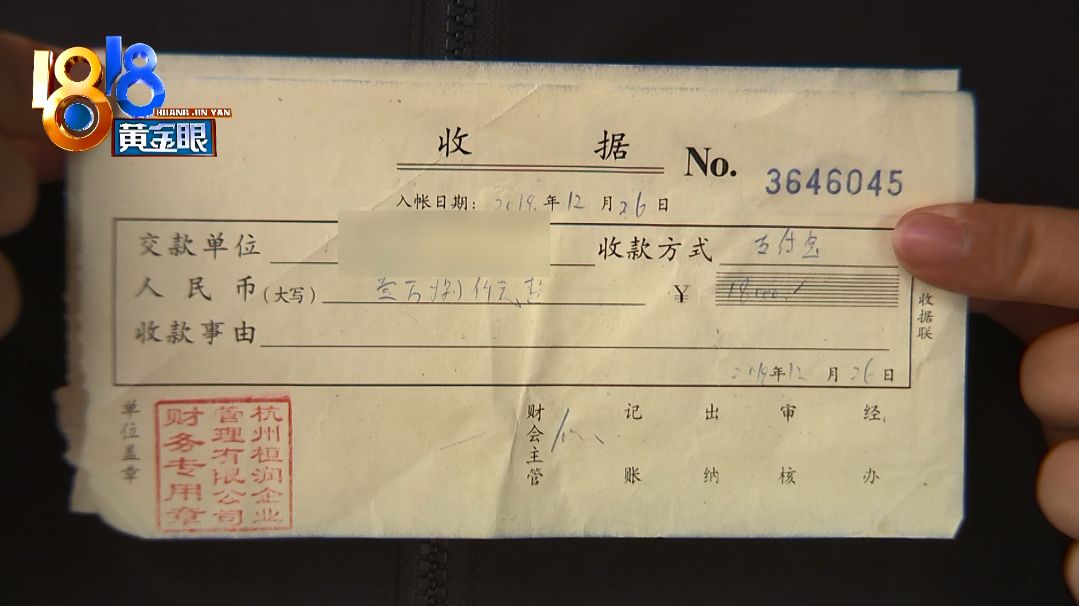 1818
HUANG JIN YAN
黄金眼
收 据 No. 3646045
入帐日期: 2019 年 12 月 26 日
交款单位 收款方式 支付宝
人民币(大写) 壹万捌仟元整 ¥ 18000
收款事由
2019年12月26日
收据联
单位盖章
杭州桓润企业
管理有限公司
财务专用章
财会主管
记账
出纳
审核
经办